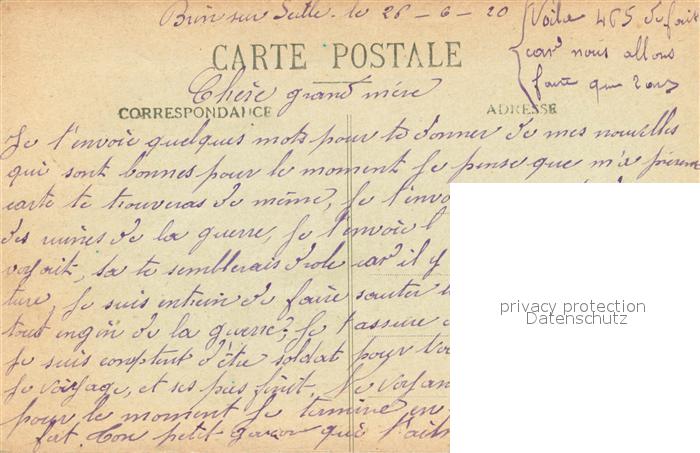 Brin sur Seille. le 26-6-20
Voila 465 de fait
car nous allons
faire que 2 ans
CARTE POSTALE
Chère grand mère
CORRESPONDANCE
ADRESSE
Je t'envoie quelques mots pour te donner de mes nouvelles
qui sont bonnes pour le moment je pense que m'a présente
carte te trouveras de même, Je t'envo
des ruines de la guerre, Je t'envoie l
voyait, sa te semblerais drole car il y
ture, Je suis entrein de faire sauter
tout engin de la guerre, Je t'assure
Je suis comptent d'être soldat pour
Je voyage, et ses pas finit. Ne voyan
pour le moment Je termine en
fat. Ton petit garçon qui t'aim
privacy protection
Datenschutz